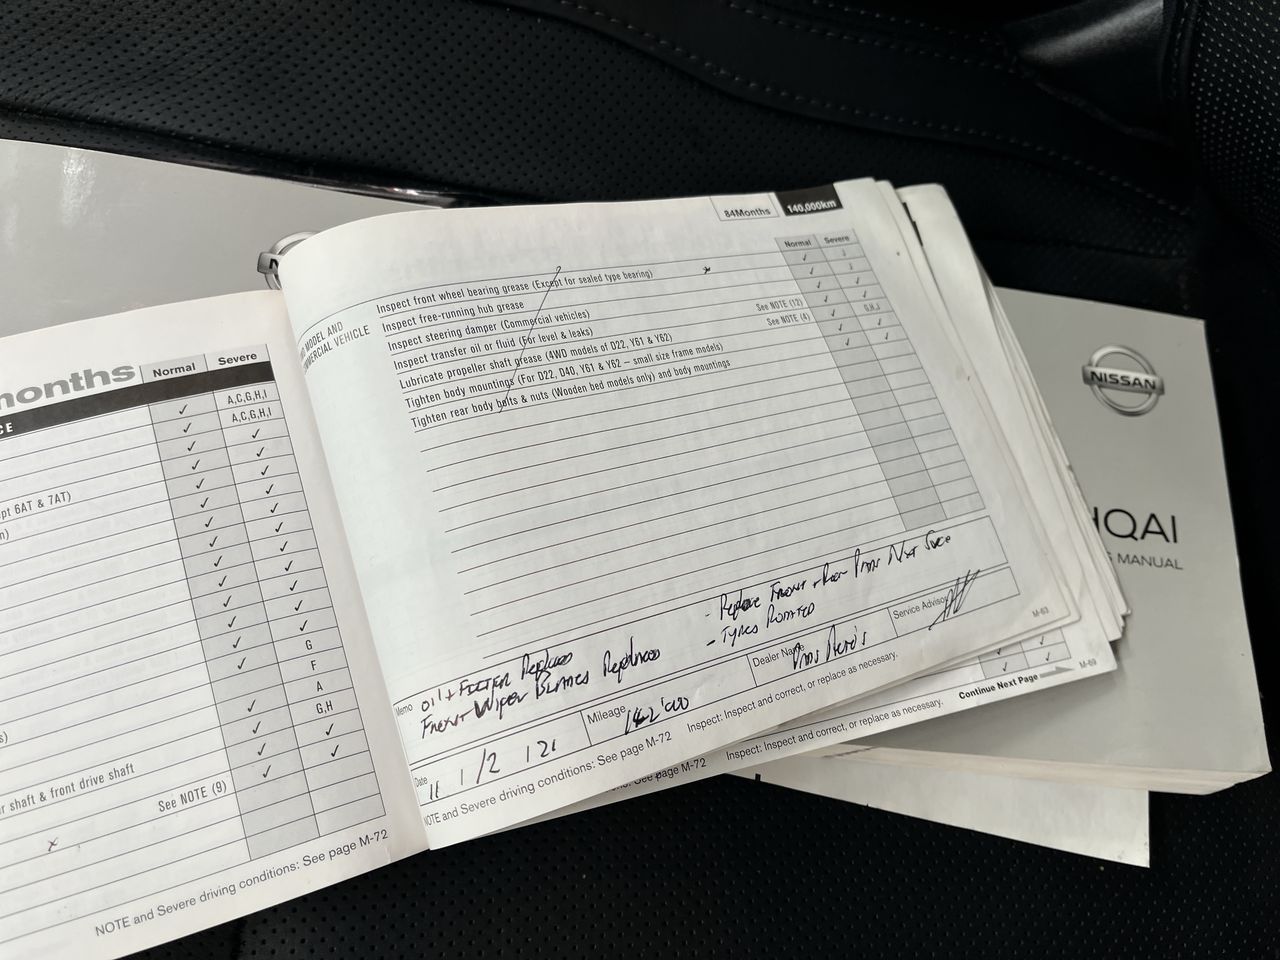 months
Normal
Severe
CE
A,C,G,H,I
A,C,G,H,I
pt 6AT & 7AT)
n)
G
F
A
G,H
s)
r shaft & front drive shaft
See NOTE (9)
x
NOTE and Severe driving conditions: See page M-72
84Months
140,000km
Normal
Severe
MODEL AND
COMMERCIAL VEHICLE
Inspect front wheel bearing grease (Except for sealed type bearing)
Inspect free-running hub grease
Inspect steering damper (Commercial vehicles)
Inspect transfer oil or fluid (For level & leaks)
See NOTE (12)
Lubricate propeller shaft grease (4WD models of D22, Y61 & Y62)
See NOTE (4)
G,H,J
Tighten body mountings (For D22, D40, Y61 & Y62 – small size frame models)
Tighten rear body bolts & nuts (Wooden bed models only) and body mountings
Memo
Oil + Filter Replaced
Front Wiper Blades Replaced
- Replace Front + Rear Next
- Tyres Rotated
Date
11/2/21
Mileage
142'000
Dealer Name
Service Advisor
M-63
NOTE and Severe driving conditions: See page M-72
Inspect: Inspect and correct, or replace as necessary.
See page M-72
Inspect: Inspect and correct, or replace as necessary.
Continue Next Page
M-69
NISSAN
HQAI
S MANUAL